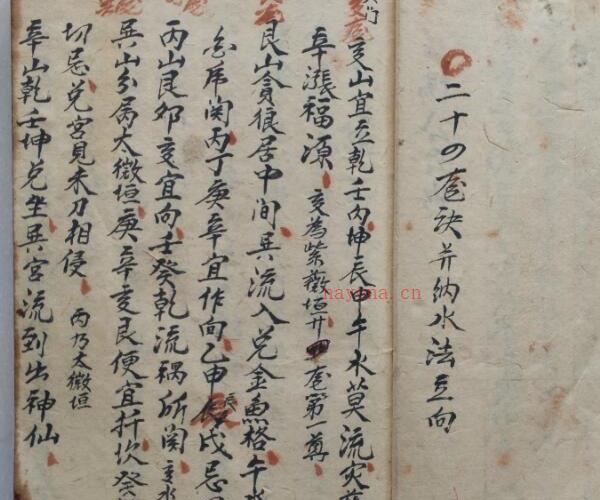 二十四龍訣并納水法立向
亥山宜立乾壬丙坤艮申午水莫流
辛漲福須 亥為紫微垣廿四龍第一尊
艮山貪狼居中间巽流入兑金魚格午水
宮庫関丙丁庚辛宜作向乙申辰戌忌
丙山艮卯亥宜向壬癸乾流禍所関亥水
巽山分属太微垣庚辛亥艮便宜扦坎癸
切忌兑宮見未刀相侵 丙乃太微垣
辛山乾壬坤兑坐巽宮流到出神仙
nayona.cn